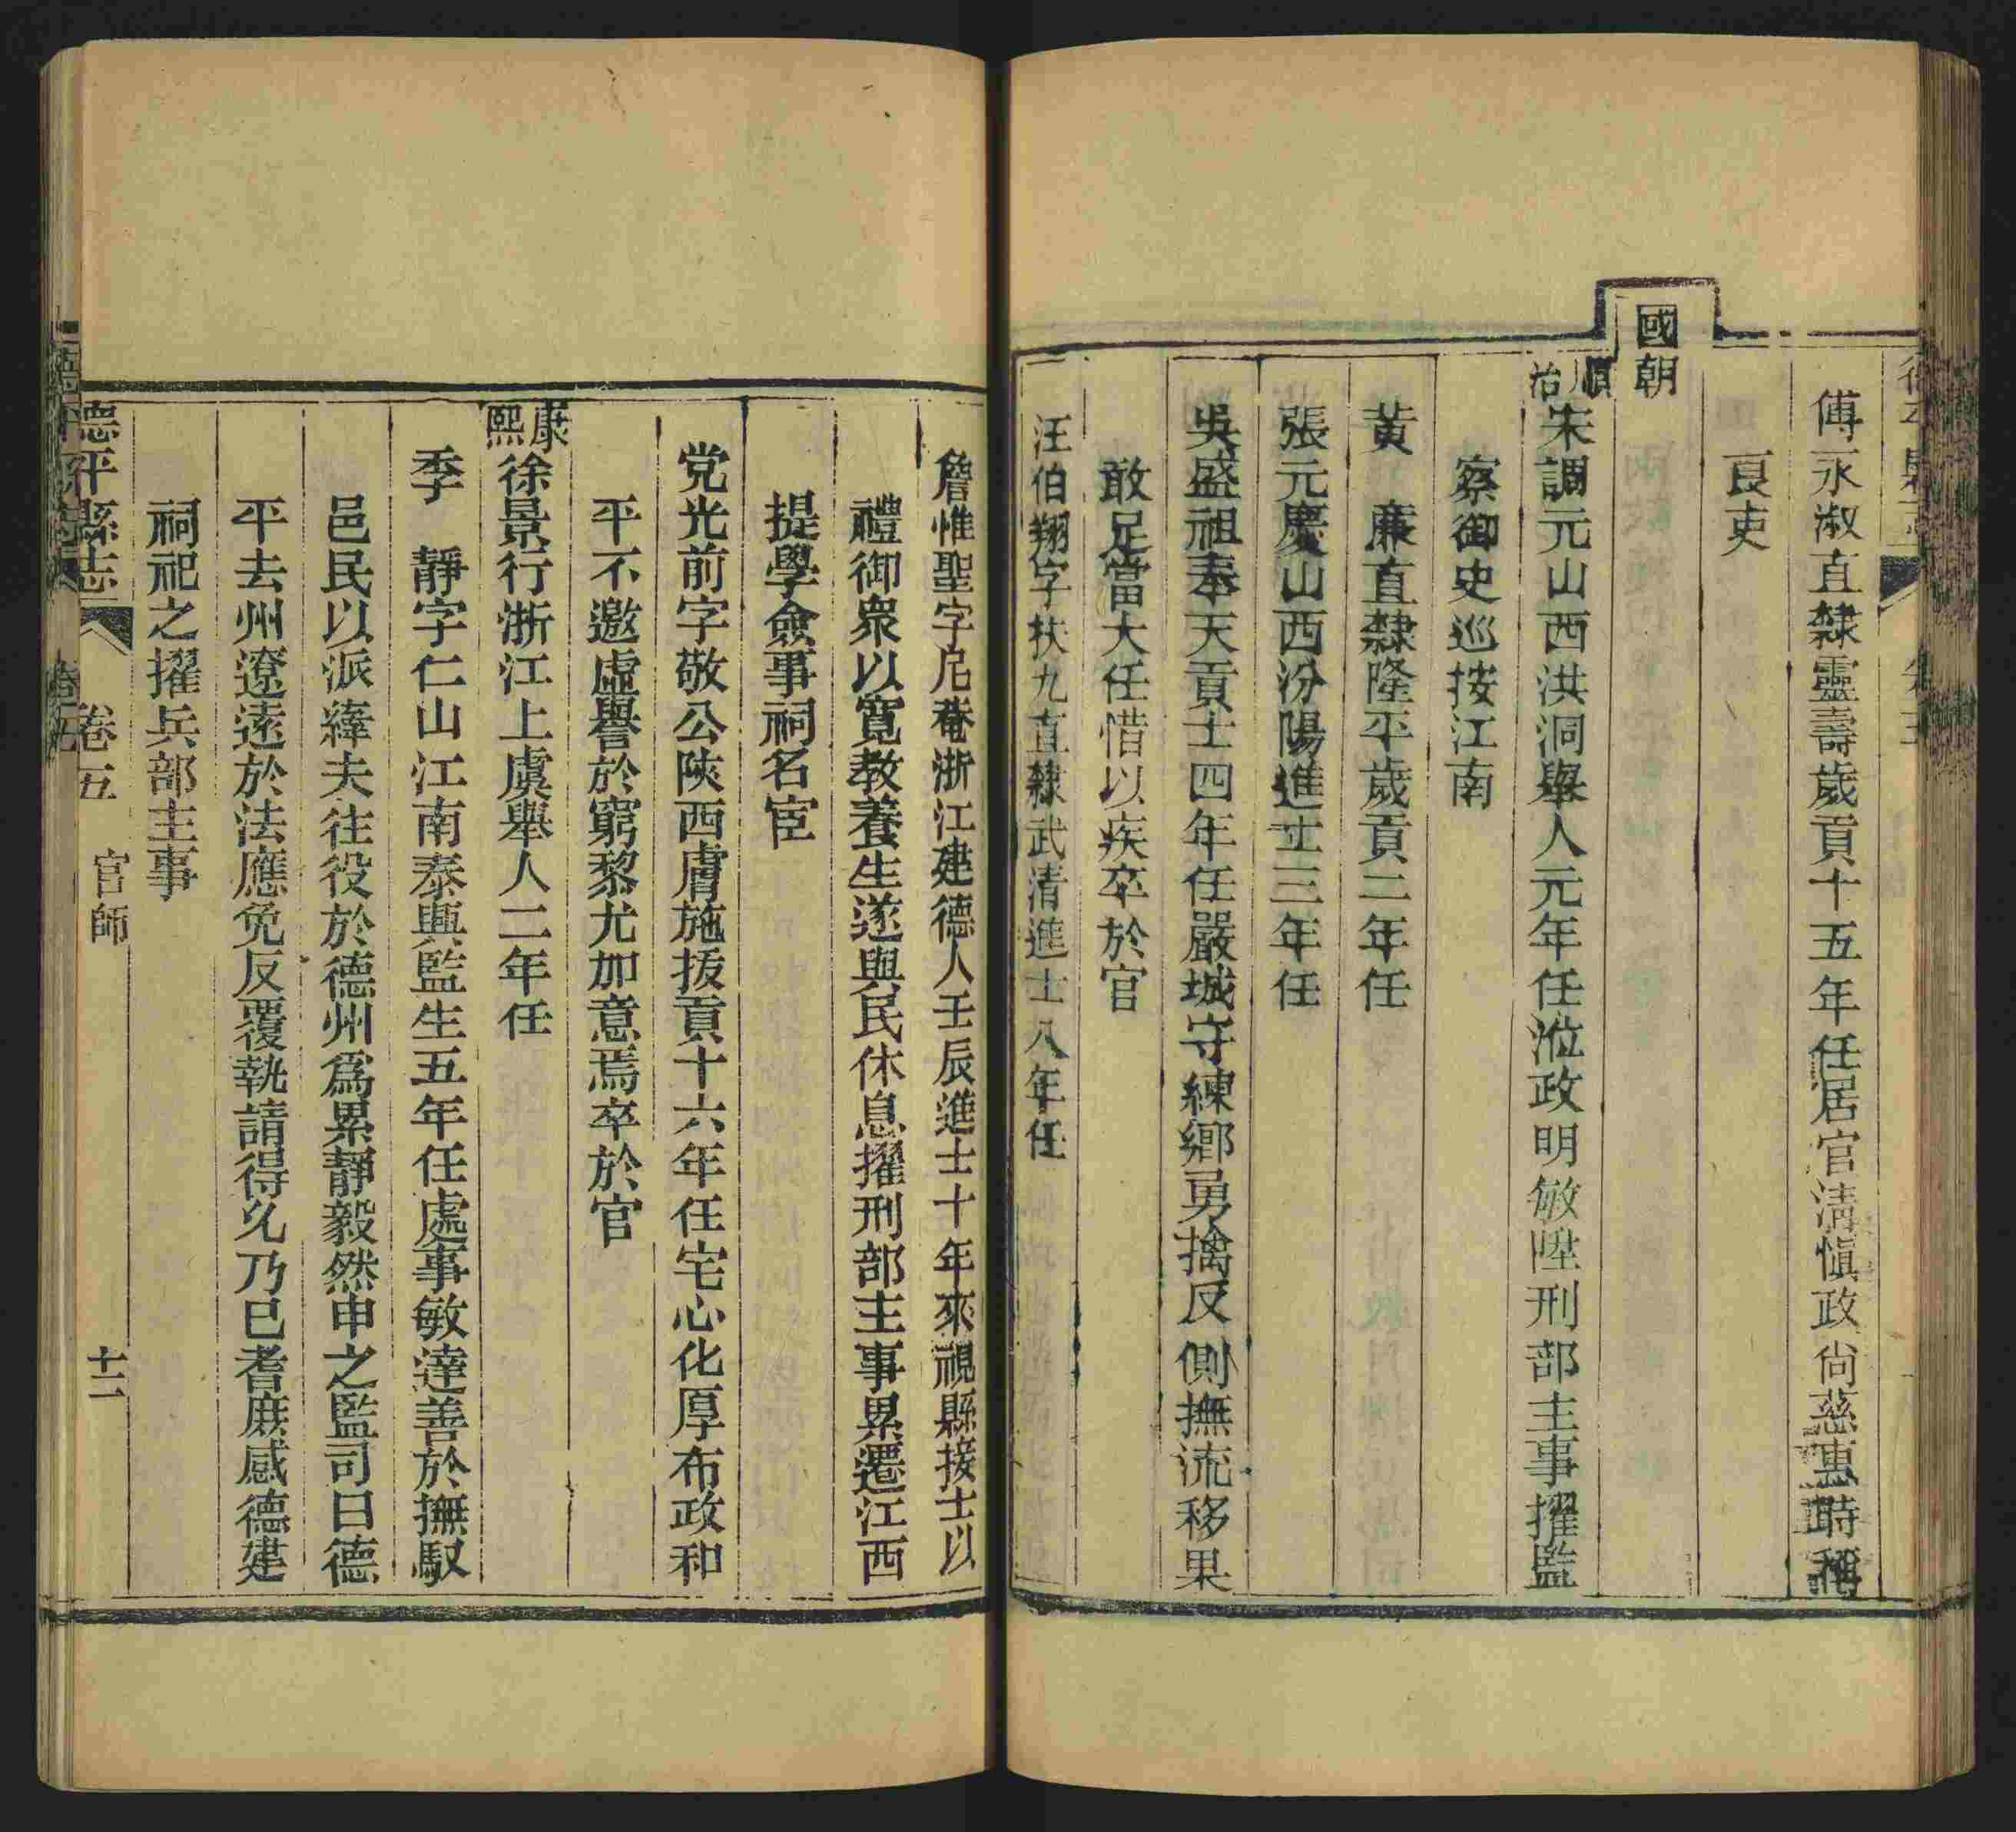 傅永淑直隸靈壽歲貢十五年任居官清愼政尙慈惠時稱
良吏
國朝
順治
宋調元山西洪洞舉人元年任涖政明敏陞刑部主事擢監
察御史巡按江南
黃　廉直隸隆平歲貢二年任
張元慶山西汾陽進士三年任
吳盛祖奉天貢士四年任嚴城守練鄉勇擒反側撫流移果
敢足當大任惜以疾卒於官
汪伯翔字扶九直隸武清進士八年任
詹惟聖字尼菴浙江建德人壬辰進士十年來視縣接士以
禮御衆以寬教養生遂與民休息擢刑部主事累遷江西
提學僉事祠名宦
党光前字敬公陝西膚施拔貢十六年任宅心化厚布政和
平不邀虛譽於窮黎尤加意焉卒於官
康熙
徐景行浙江上虞舉人二年任
季　靜字仁山江南泰興監生五年任處事敏達善於撫馭
邑民以派縴夫往役於德州爲累靜毅然申之監司曰德
平去州遼遠於法應免反覆執請得允乃已耆庶感德建
祠祀之擢兵部主事
德平縣志
卷五
官師
十二